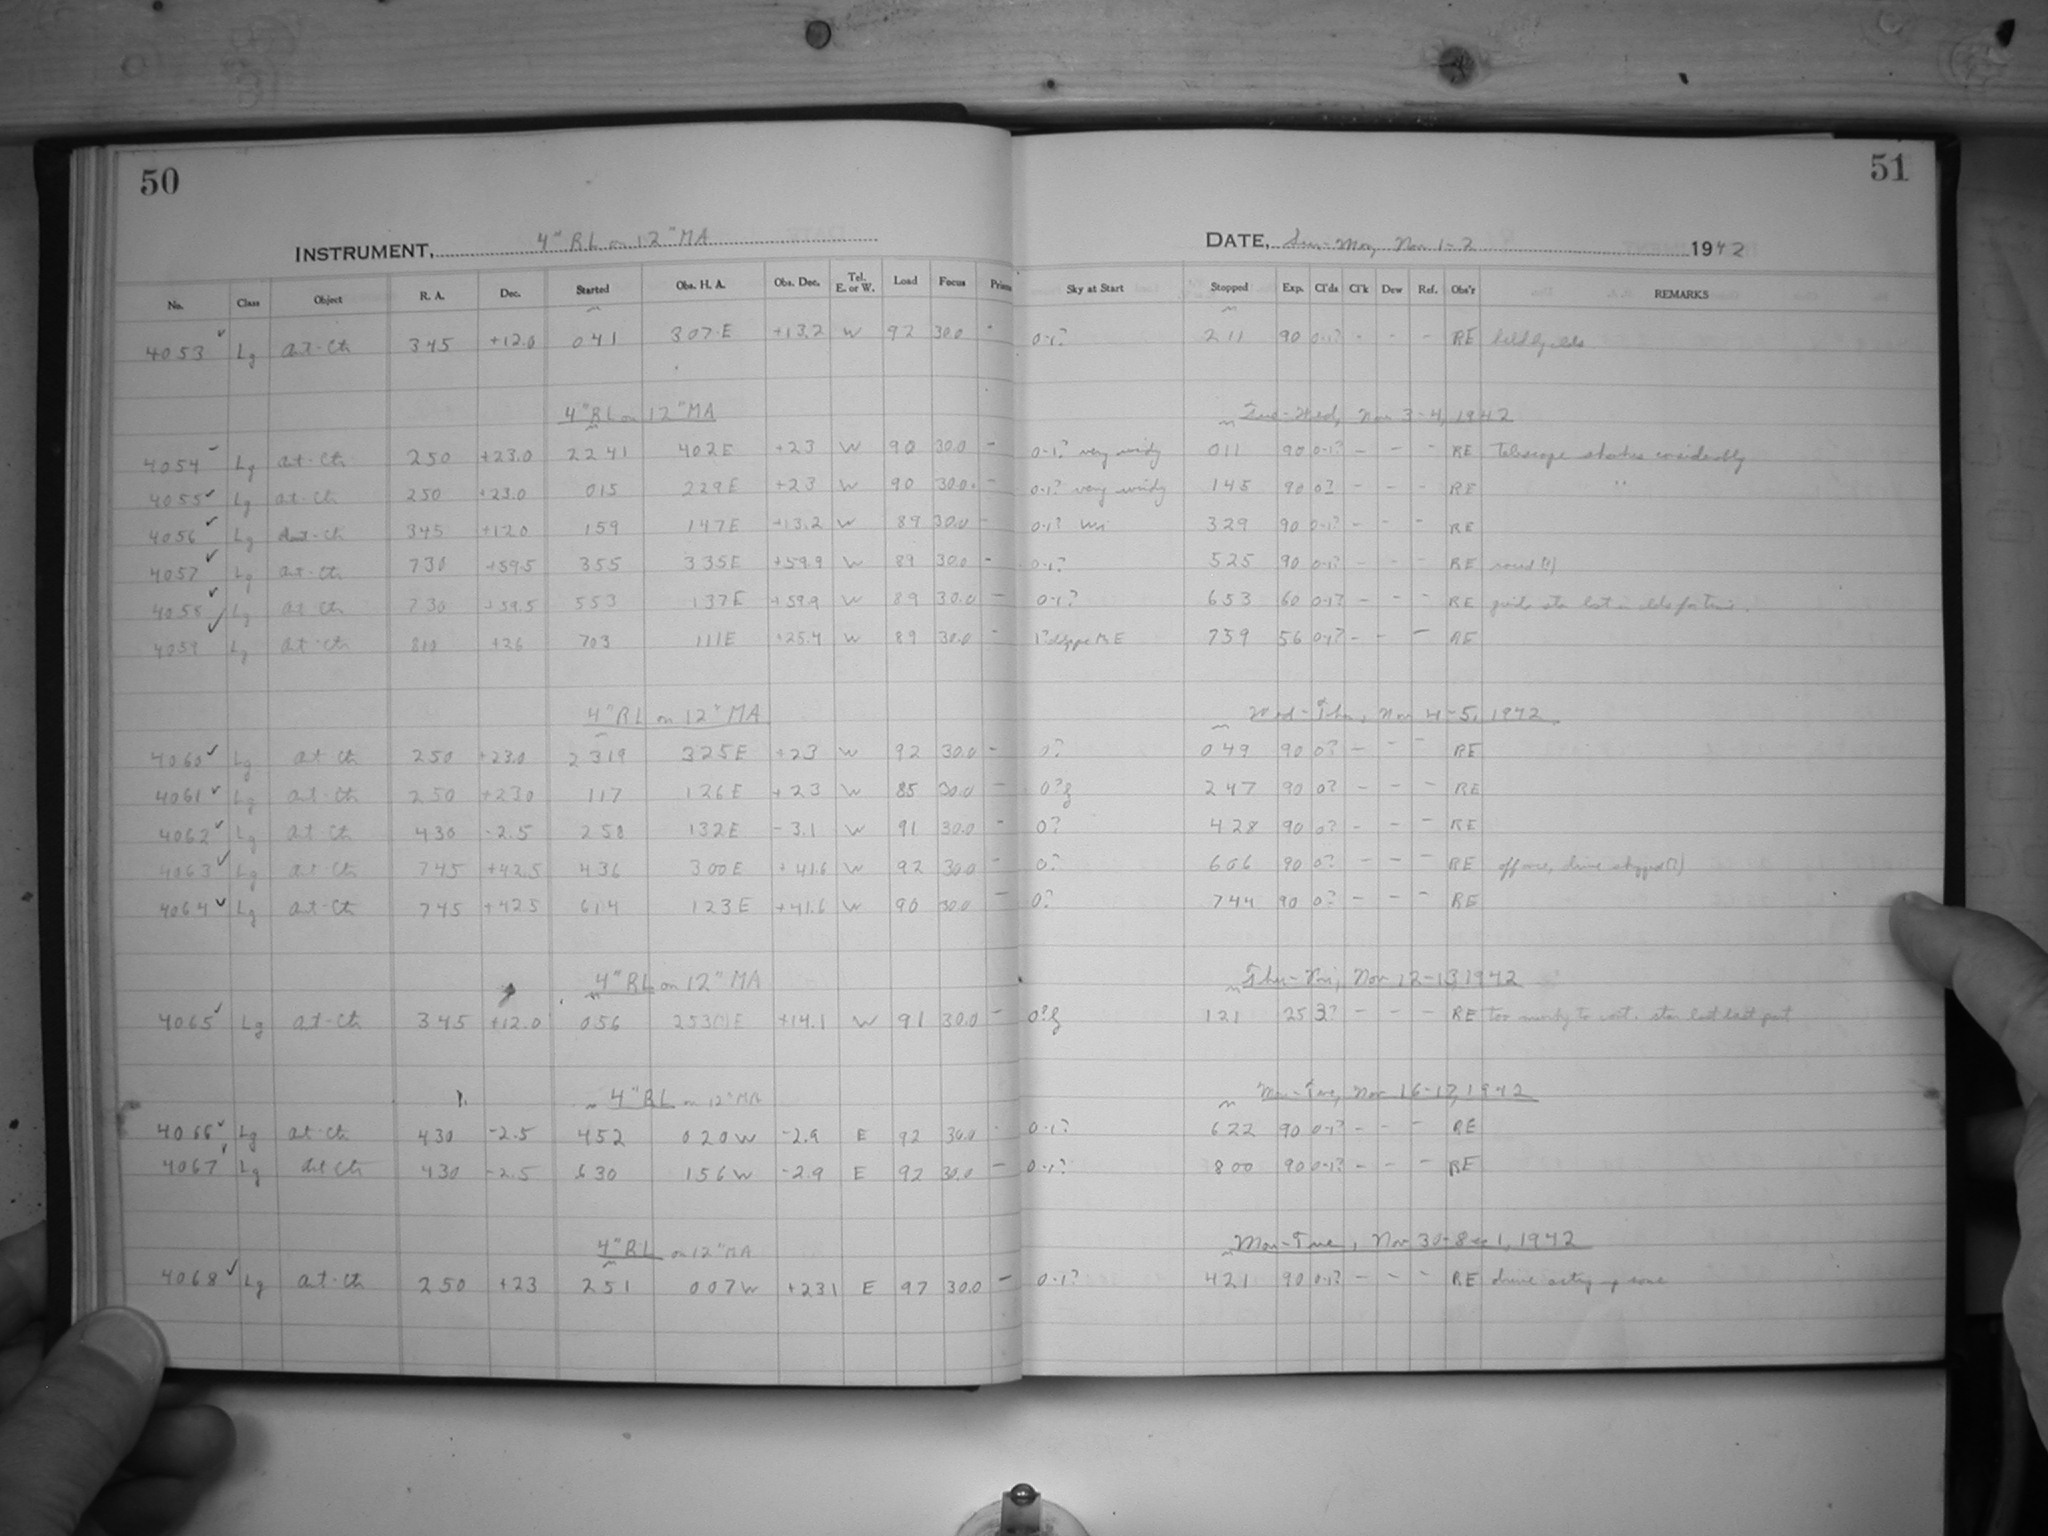 50
51
INSTRUMENT, 4" RL on 12" MA
DATE, Sun-Mon, Nov 1-2 1942
No. Class Object R. A. Dec. Started Obs. H. A. Obs. Dec. Tel. E. or W. Load Focus Sky at Start Stopped Exp. Cl'ds Cl'k Dew Ref. Obs'r REMARKS
4053 Lg at-Ch 345 +12.0 041 307 E +13.2 W 92 30.0 - 0-1? 211 90 0-1? - - - RE
4" RL on 12" MA Tue-Wed, Nov 3-4, 1942
4054 Lg at-Ch 250 +23.0 2241 402 E +23 W 90 30.0 - 0-1? very windy 011 90 0-1? - - - RE Telescope shakes considerably
4055 Lg at-Ch 250 +23.0 015 229 E +23 W 90 30.0 - 0-1? very windy 145 90 0? - - - RE "
4056 Lg at-Ch 345 +12.0 159 147 E +13.2 W 89 30.0 - 0-1? 329 90 0-1? - - - RE
4057 Lg at-Ch 730 +59.5 355 335 E +59.9 W 89 30.0 - 0-1? 525 90 0-1? - - - RE
4058 Lg at-Ch 730 +59.5 553 137 E +59.9 W 89 30.0 - 0-1? 653 60 0-1? - - - RE guide star lost in clds for time.
4059 Lg at-Ch 810 +26 703 111 E +25.4 W 89 30.0 - 759 56 0-1? - - - RE
4" RL on 12" MA Wed-Thu, Nov 4-5, 1942
4060 Lg at-Ch 250 +23.0 2319 325 E +23 W 92 30.0 - 0? 049 90 0? - - - RE
4061 Lg at-Ch 250 +23.0 117 126 E +23 W 85 30.0 - 0? 247 90 0? - - - RE
4062 Lg at-Ch 430 -2.5 258 132 E -3.1 W 91 30.0 - 0? 428 90 0? - - - RE
4063 Lg at-Ch 745 +42.5 436 300 E +41.6 W 92 30.0 - 0? 606 90 0? - - - RE off once, drive stopped(?)
4064 Lg at-Ch 745 +42.5 614 123 E +41.6 W 90 30.0 - 0? 744 90 0? - - - RE
4" RL on 12" MA Thu-Fri, Nov 12-13, 1942
4065 Lg at-Ch 345 +12.0 056 253 E +14.1 W 91 30.0 - 0? 121 25 3? - - - RE too star lost last part
4" RL on 12" MA Mon-Tue, Nov 16-17, 1942
4066 Lg at-Ch 430 -2.5 452 020 W -2.9 E 92 30.0 - 0-1? 622 90 0-1? - - - RE
4067 Lg at-Ch 430 -2.5 630 156 W -2.9 E 92 30.0 - 0-1? 800 90 0-1? - - - RE
4" RL on 12" MA Mon-Tue, Nov 30-Dec 1, 1942
4068 Lg at-Ch 250 +23 251 007 W +23.1 E 97 30.0 - 0-1? 421 90 0-1? - - - RE drive acting up some